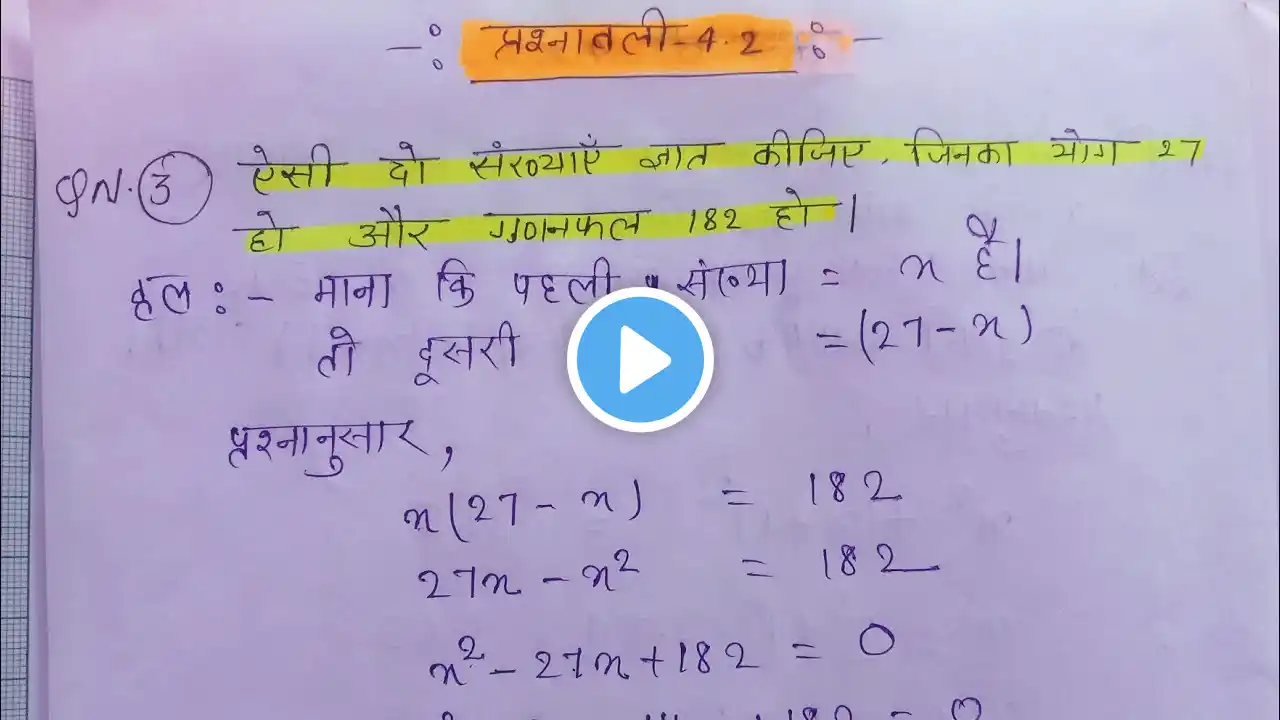 -: प्रश्नावली-4.2 :-
QN.3 ऐसी दो संख्याएँ ज्ञात कीजिए, जिनका योग 27
हो और गुणनफल 182 हो।
हल :- माना कि पहली संख्या = x है।
तो दूसरी = (27-x)
प्रश्नानुसार,
x(27-x) = 182
27x-x² = 182
x²-27x+182 = 0